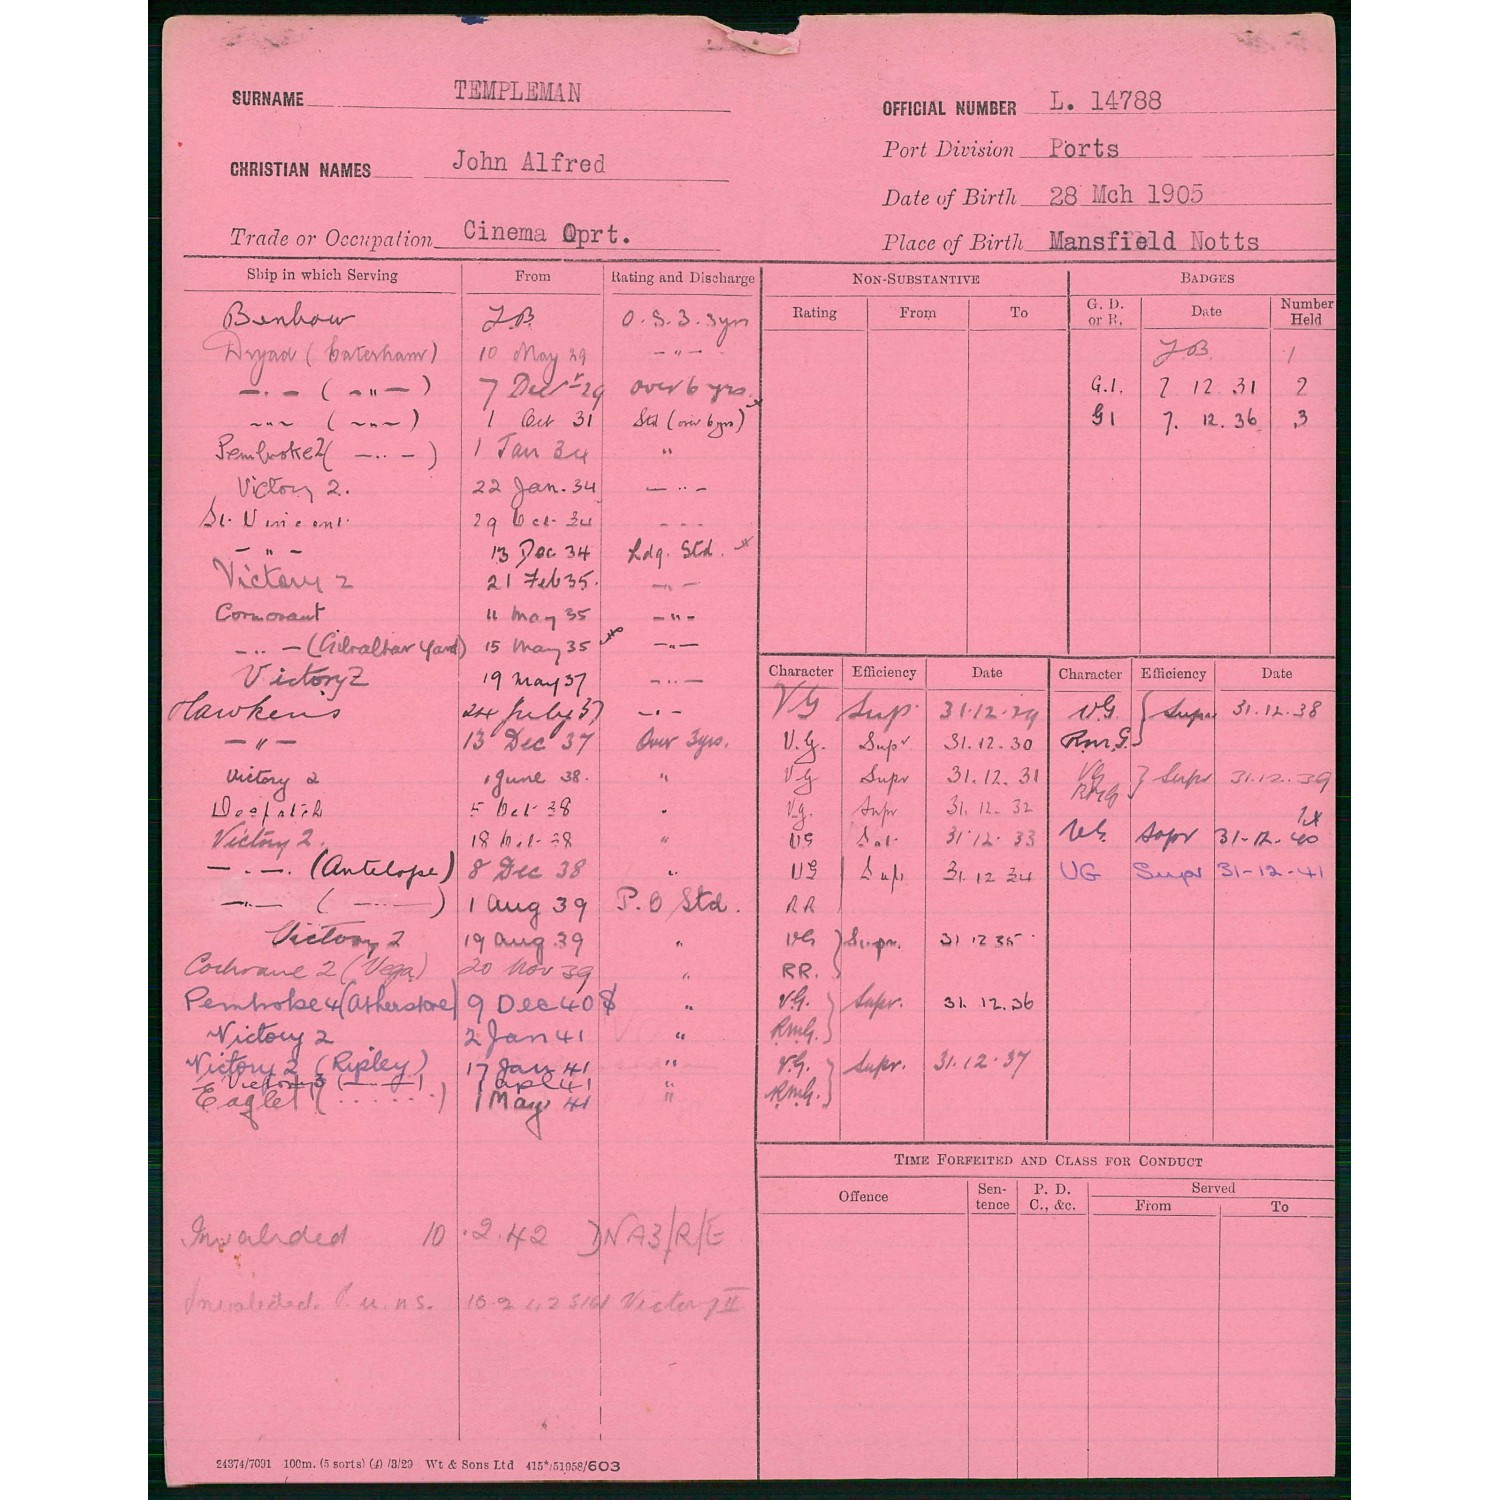 SURNAME TEMPLEMAN
OFFICIAL NUMBER L. 14788
Port Division Ports
CHRISTIAN NAMES John Alfred
Date of Birth 28 Mch 1905
Trade or Occupation Cinema Oprt.
Place of Birth Mansfield Notts
Ship in which Serving From Rating and Discharge
Benbow J.B. O.S.3. 3yrs
Dryad (Caterham) 10 May 29 — " —
— " — ( — " — ) 7 Decr 29 over 6 yrs.
— " — ( — " — ) 1 Oct 31 Std (over 6 yrs)
Pembroke 2 ( — " — ) 1 Jan 34 "
Victory 2. 22 Jan. 34 — " —
St. Vincent. 29 Oct. 34 — " —
— " — 13 Dec 34 Ldg. Std.
Victory 2 21 Feb 35. — " —
Cormorant 11 May 35 — " —
— " — (Gibraltar Yard) 15 May 35 — " —
Victory 2 19 May 37 — " —
Hawkins 24 July 37 — " —
— " — 13 Dec 37 Over 3yrs.
Victory 2 1 June 38. "
Despatch 5 Oct 38 "
Victory 2. 18 Oct. 38 "
— " — (Antelope) 8 Dec 38 "
— " — ( — " — ) 1 Aug 39 P.O Std.
Victory 2 19 Aug 39 "
Cochrane 2 (Vega) 20 Nov 39 "
Pembroke 4 (Atherstone) 9 Dec 40 "
Victory 2 2 Jan 41 "
Victory 2 (Ripley) 17 Jan 41 "
Victory 3 ( — " — ) 1 Apl 41 "
Eaglet ( . . . . . . ) 1 May 41 "
Invalided 10.2.42 DNA3/R/E
Invalided P.U.N.S. 10.2.42 Victory II
NON-SUBSTANTIVE
Rating From To
BADGES
G. D. or R. Date Number Held
J.B. 1
G.1. 7. 12. 31 2
G1 7. 12. 36 3
Character Efficiency Date Character Efficiency Date
VG Sup. 31.12.29 V.G. R.M.G. } Supr 31.12.38
V.G. Supr 31.12.30
VG Supr 31.12.31 VG RMG } Supr 31.12.39
V.g. Supr 31.12.32
VG Sat. 31 12 33 V.G. Supr 31-12-40
VG RR Sup. 31.12 34 VG Supr 31-12-41
VG RR. } Supr. 31 12 35
V.G. R.M.G. } Supr. 31.12.36
V.G. R.M.G. } Supr. 31.12.37
TIME FORFEITED AND CLASS FOR CONDUCT
Offence Sentence P. D. C., &c. Served
From To
24374/7091 100m. (5 sorts) (4) /3/29 Wt & Sons Ltd 415*/51958/603